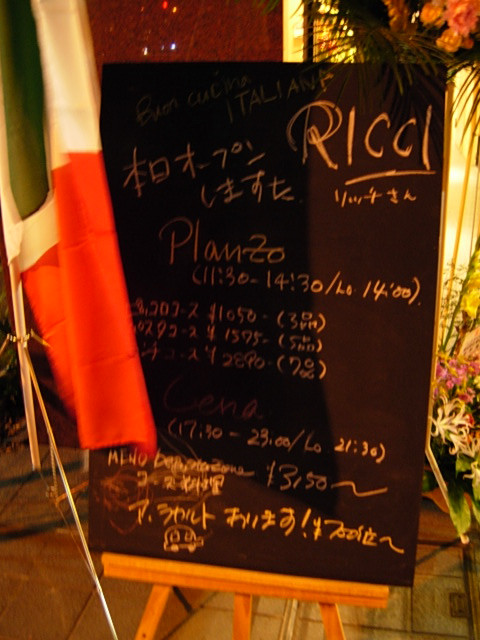 Buon cucina
ITALIANA
RICCI
リッチさん
本日オープン
しました
Planzo
(11:30-14:30/Lo 14:00)
コース ¥1050-(3品)
コース ¥1575-(5品)
コース ¥2890-(7品)
Cena
(17:30-23:00/Lo 21:30)
MENU
コース料理 ¥3,150〜
ア・ラカルト あります!